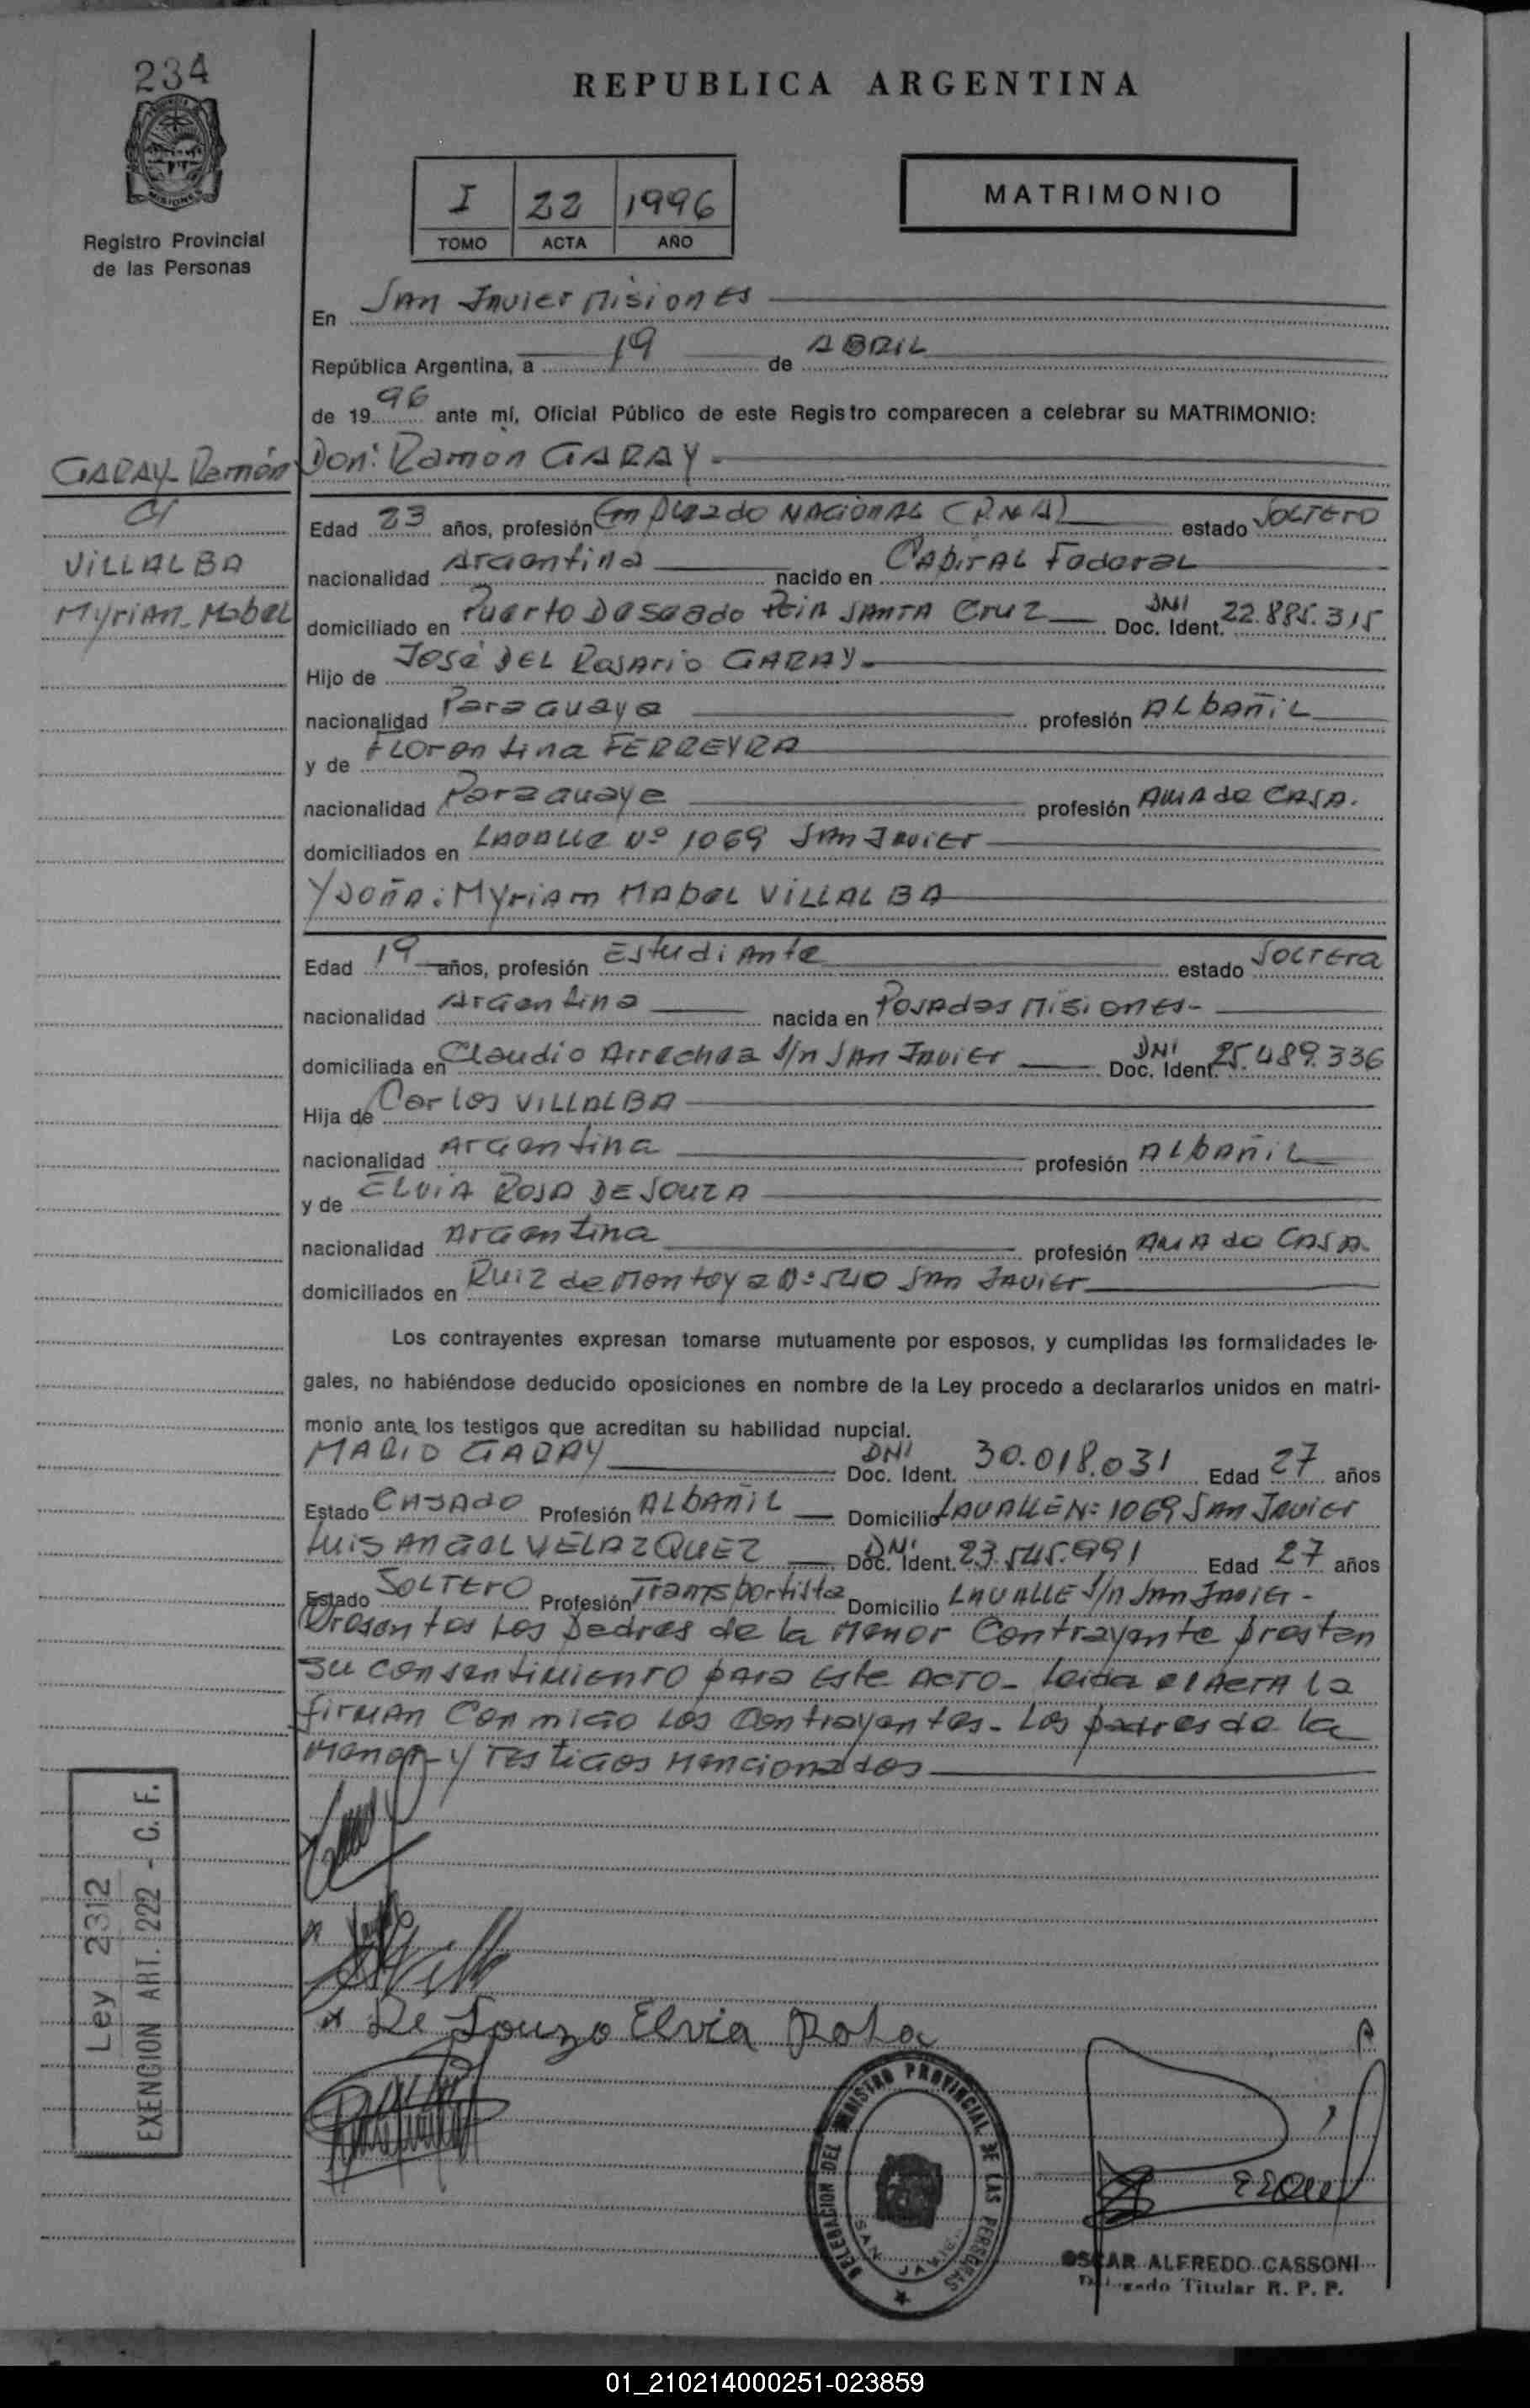 234
MISIONES
Registro Provincial
de las Personas
REPUBLICA ARGENTINA
I 22 1996
TOMO ACTA AÑO
MATRIMONIO
En San Javier Misiones
República Argentina, a 19 de ABRIL
de 1996 ante mí, Oficial Público de este Registro comparecen a celebrar su MATRIMONIO:
GARAY-Ramón
c/
VILLALBA
Myrian-Mabel
Don: Ramón GARAY.
Edad 23 años, profesión Empleado NACIONAL (P.N.A) estado SOLTERO
nacionalidad Argentina nacido en CAPITAL Federal
domiciliado en Puerto Deseado Pcia SANTA Cruz DNI Doc. Ident. 22.885.315
Hijo de José DEL Rosario GARAY.
nacionalidad Paraguaya profesión ALbañiL
y de FLorentina FERREYRA
nacionalidad Paraguaya profesión AMA de CASA.
domiciliados en LAVALLe Nº 1069 San Javier
Y DOÑA: Myriam MABEL VILLALBA
Edad 19 años, profesión Estudiante estado SOLTERA
nacionalidad Argentina nacida en Posadas Misiones-
domiciliada en Claudio Arrechea S/n San Javier DNI Doc. Ident. 25.489.336
Hija de Carlos VILLALBA
nacionalidad Argentina profesión ALbañiL
y de ELVIA ROSA DE SOUZA
nacionalidad Argentina profesión AMA de CASA.
domiciliados en Ruiz de Montoya Nº 540 San Javier
Los contrayentes expresan tomarse mutuamente por esposos, y cumplidas las formalidades le-
gales, no habiéndose deducido oposiciones en nombre de la Ley procedo a declararlos unidos en matri-
monio ante los testigos que acreditan su habilidad nupcial.
MARIO GARAY DNI Doc. Ident. 30.018.031 Edad 27 años
Estado CASADO Profesión ALbAñiL Domicilio LAVALLE Nº 1069 San Javier
Luis ANGEL VELAZQUEZ DNI Doc. Ident. 23.545.991 Edad 27 años
Estado SOLTERO Profesión Transportista Domicilio LAVALLE S/n San Javier-
Presentes Los Padres de la Menor Contrayente prestan
su consentimiento para este ACTO- Leida el Acta la
firman Conmigo Los Contrayentes- Los padres de la
Menor- y Testigos Mencionados
x De Souza Elvia Rosa
Ley 2312
EXENCION ART. 222 - C. F.
DELEGACION DEL REGISTRO PROVINCIAL DE LAS PERSONAS
SAN JAVIER
OSCAR ALFREDO CASSONI
Delegado Titular R. P. P.
01_210214000251-023859